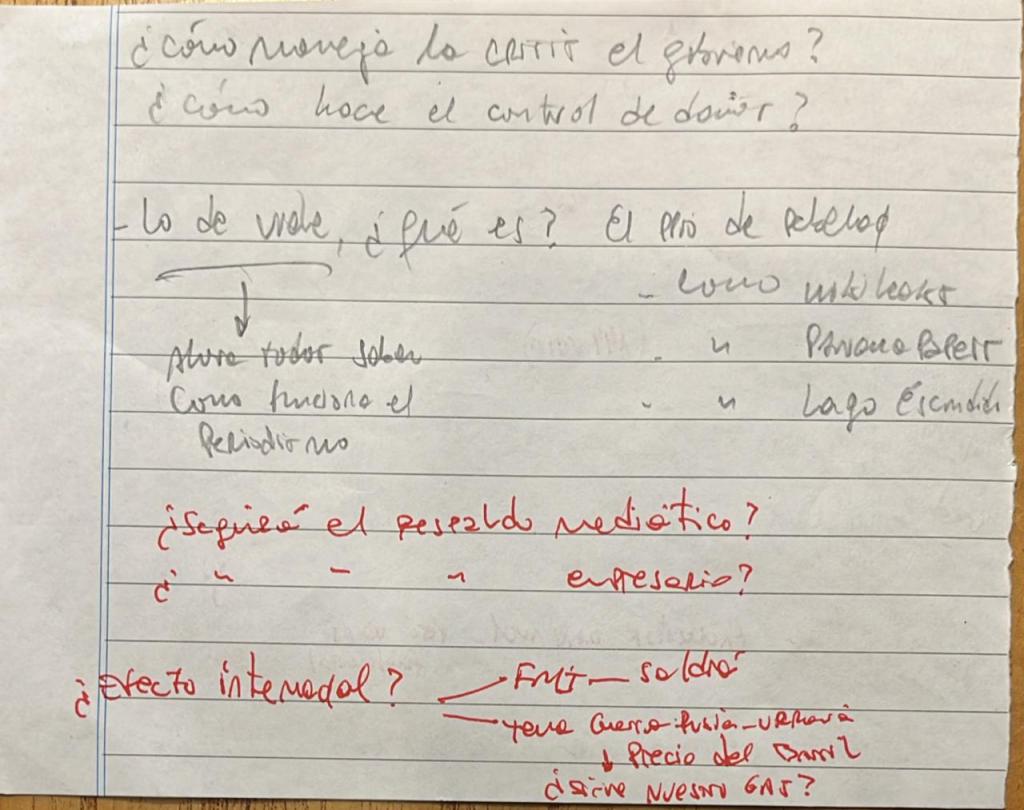 ¿cómo maneja la crisis el gobierno?
¿cómo hace el control de daños?
- Lo de viale, ¿qué es? El de
- como wikileaks
- " Panama Papers
- " Lago Escondido
Ahora todos saben
Como funciona el
Periodismo
¿Seguirá el respaldo mediático?
¿ " " " empresario?
¿Efecto internacional?
FMI — Saldrá
Tema Guerra Rusia-Ucrania
↓ Precio del Barril
¿sirve nuestro GAS?